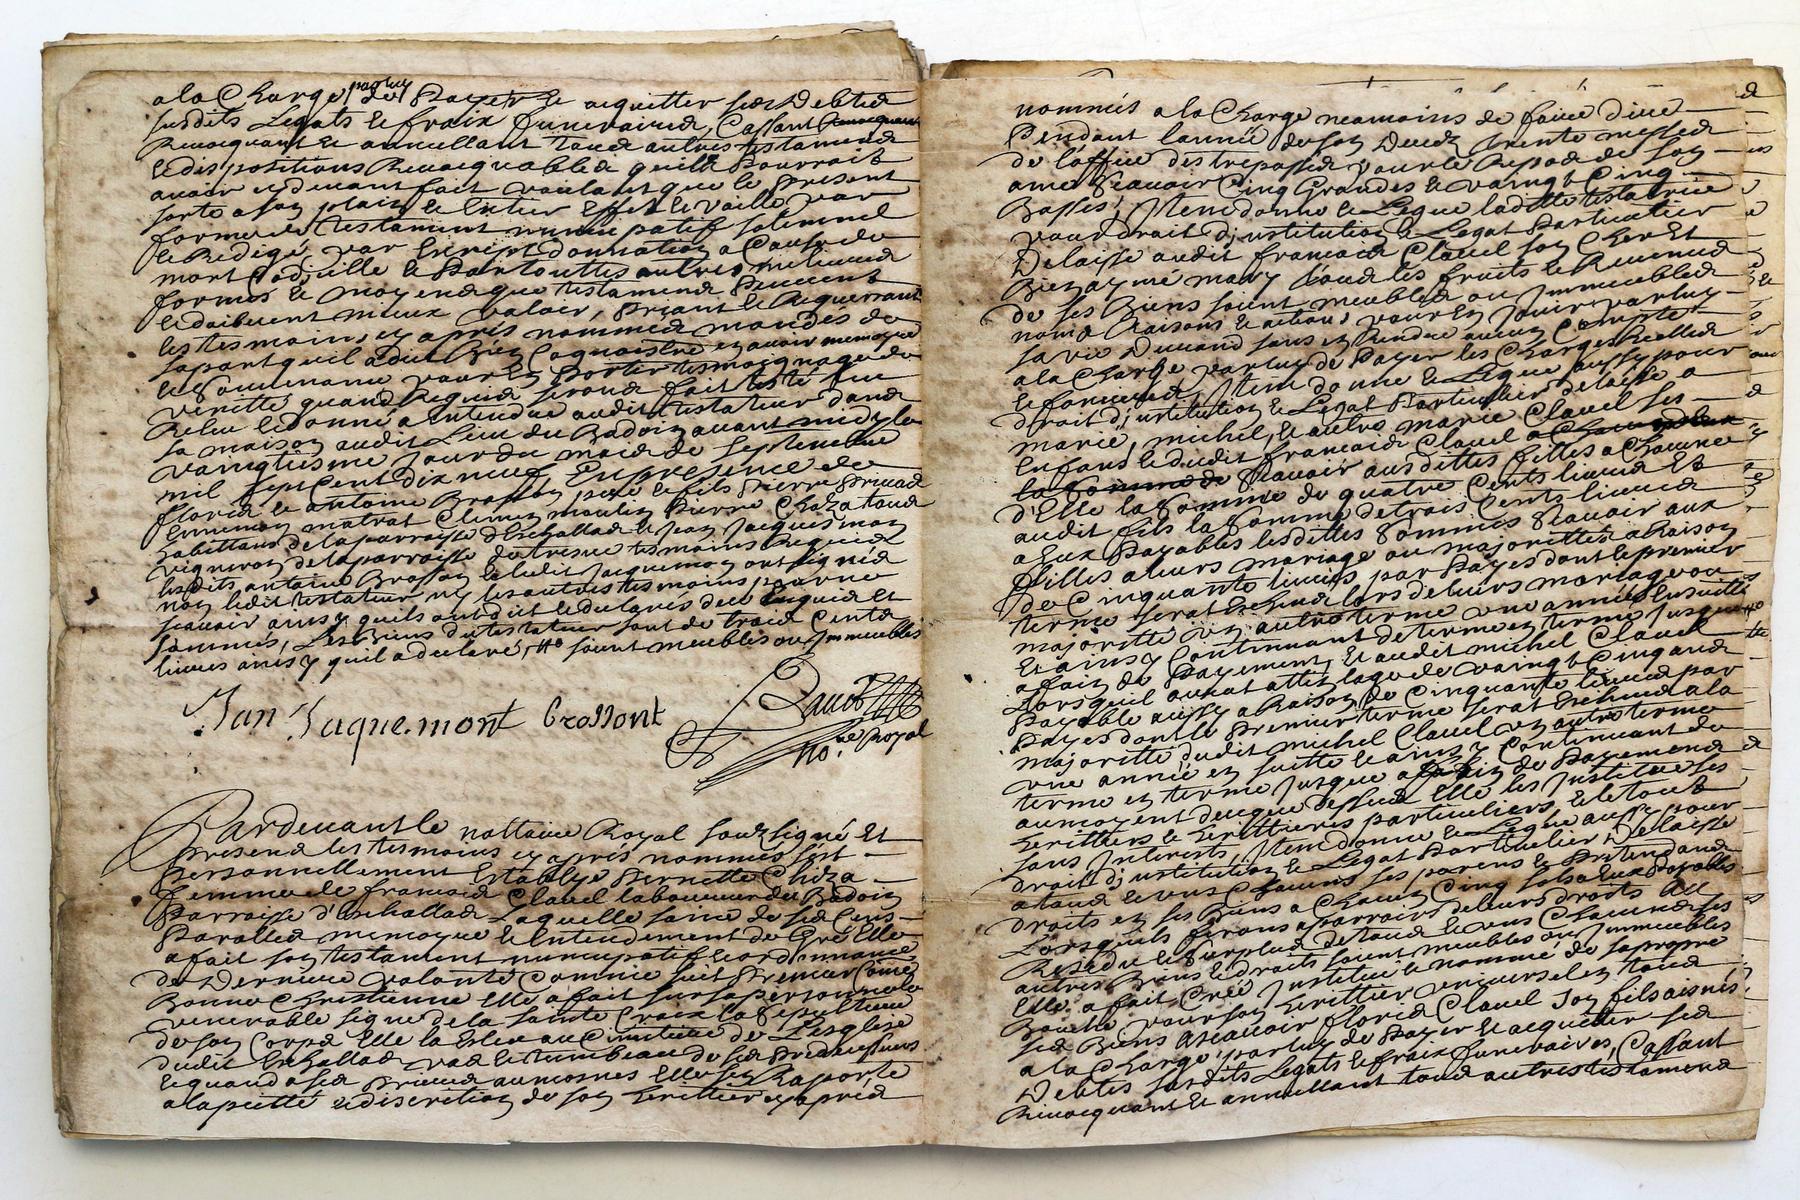 a la Charge par luy de Payer Et acquitter ses Debtes
susdits Legats Et fraix funeraires, Cassant
Revocquant Et annullant tous autres testaments
Et dispositions Revocquables qu'il Pourroit
avoir cy devant fait voulant que le present
sorte a son plain Et Entier Effet Et vaille par
forme de testament nuncupatif solemnel
Et Redigé par Escript donnation a Cause de
mort Codicille Et Par touttes autres meilleures
formes Et moyens que testamens Peuvent
Et doibvent mieux valoir, Priant Et Requerrant
les tesmoins cy aprés nommés mandés de
sa part qu'il a dit Bien Cognoistre en avoir memoire
Et Souvenance pour En Porter tesmoignage de
verité quand Requis seront fait leu
Releu Et donné a Entendre audit testateur dans
sa maison audit Lieu du Badoin avant midy le
vaingtiesme Jour du mois de Septembre
mil sept Cent dix neuf En presence de
floris Et antoine Brosson pere Et fils Pierre
Ennemon matrat Clement moulin Pierre Chaza tous
habittans de la parroisse d'Eschallas Et Jean Jacquemon
vigneron de la parroisse de tresve tesmoins Requis
lesdits antoine Brosson Et ledit Jacquemon ont signés
non ledit testateur ny les autres tesmoins pour ne
scavoir ainsy qu'ils ont dit Et declarés de ce Enquis Et
sommés, Les Biens du testateur sont de trois Cents
livres ainsy qu'il a declaré, soient meubles ou Immeubles
Jan Jaquemont Brossont
no.re Royal
Pardevant le nottaire Royal soubsigné Et
presens les tesmoins cy aprés nommés s'est
personnellement Establye Pernette Chiza
femme de francois Clavel laboureur du Badoin
Parroisse d'Eschallas Laquelle saine de ses Cens
Parolles memoyre Et Entendement de Gré Elle
a fait son testament nuncupatif Et ordonnance
de Derniere volonté Comme suit Premier Comme
Bonne Christienne Elle a fait sur sa personne le
venerable signe de la Sainte Croix la Sepulture
de son Corps Elle la Esleu au Cimitiere de L'esglise
dudit Eschallas vas Et tumbeau de ses Predecesseurs
Et quand a ses prieres aumosnes Elle s'en Raporte
a la pietté Et discretion de son heritier cy aprés
nommés a la Charge neamoins de faire Dire
Pendant l'année de son Deces trente messes
de l'office des trepassés pour le Repos de son
ame Scavoir Cinq Grandes Et vaingt Cinq
Basses, Item donne Et Legue ladite testatrice
pour droit d'institution Et Legat Particulier
Delaisse audit francois Clavel son Cher Et
Bien aymé mary tous les fruits Et Revenus
de ses Biens soient meubles ou Immeubles
noms Raisons Et actions pour En Jouir par luy
sa vie Durand sans En Rendre aucun Compte
a la Charge par luy de Payer les Charges Reelles
Et foncieres, Item donne Et Legue aussy pour
droit d'institution Et Legat Particulier delaisse a
marie, michel, Et autre marie Clavel ses
Enfans Et dudit francois Clavel a Chacun deux
la Somme de Scavoir ausdittes filles a Chacune
d'Elle la Somme de quatre Cents livres Et
audit fils la Somme de trois Cents livres
a Eux Payables lesdittes Sommes Scavoir aux
filles a leurs mariage ou majorittés a Raison
de Cinquante livres par Payes dont le premier
terme serat Escheus lors de leurs mariage ou
majoritté un autre terme une année Ensuitte
Et ainsy Continuant de terme en terme Jusque
a fait de Payement, Et audit michel Clavel
Lorsquil aurat attit lage de vaingt Cinq ans
Payable aussy a Raison de Cinquante livres par
Payes dont le Premier terme serat Escheus a la
majoritté dudit michel Clavel un autre terme
une année en suitte Et ainsy Continuant de
terme en terme Jusque a fin de Payement
au moyent de ce que dessus Elle les Institue ses
heritiers Et herittieres particuliers, Et le tout
sans Interests, Item donne Et Legue aussy pour
droit d'institution Et Legat Particulier Delaisse
a tous Et uns Chacuns ses parens Et Prétendans
droits en ses Biens a Chacun Cinq sols a Eux Payables
Lorsquils feront apparroir de leurs droits Au
Residu Et surplus de tous Et uns Chacuns ses
autres Biens Et droits soient meubles ou Immeubles
Elle a fait Créé Institué Et nommé de sa propre
Bouche pour son herittier universel en tous
ses Biens Ascavoir floris Clavel son fils aisnés
a la Charge par luy de Payer Et acquitter ses
Debtes susdits Legats Et fraix funeraires, Cassant
Revocquant Et annullant tous autres testamens